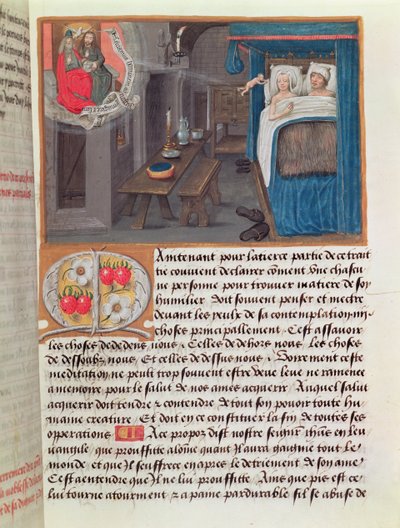 aintenant pour la tierce partie de ce trait
tie couvient declairer coment Une chascu
ne personne pour trouver matiere de soy
humilier Doit souvent penser et mectre
devant les yeulx de sa contemplation iiij
choses principallement Cest assavoir
les choses de dedens nous . Celles de dehors nous . Les choses
de dessoubz nous . Et celles de dessus nous . ceste
meditation ne peult trop souvent estre leue ne ramenee
a memoire pour le salut de nos ames acquerir . Auquel salut
acquerir doit tendre & contendre de tout son pouoir toute hu
maine creature . Et doit en ce constituer la fin de toutes ses
operations A ce propoz dist nostre seignr ihus en leu
uangile que prouffite alome quant Il aura gaignie tout le
monde et que Il seuffre en apres le detriement de son ame
Cest a entendre que Il ne lui prouffitte . Ains que pis est ce
lui tourne a tourment & a paine pardurable sil se abuse de